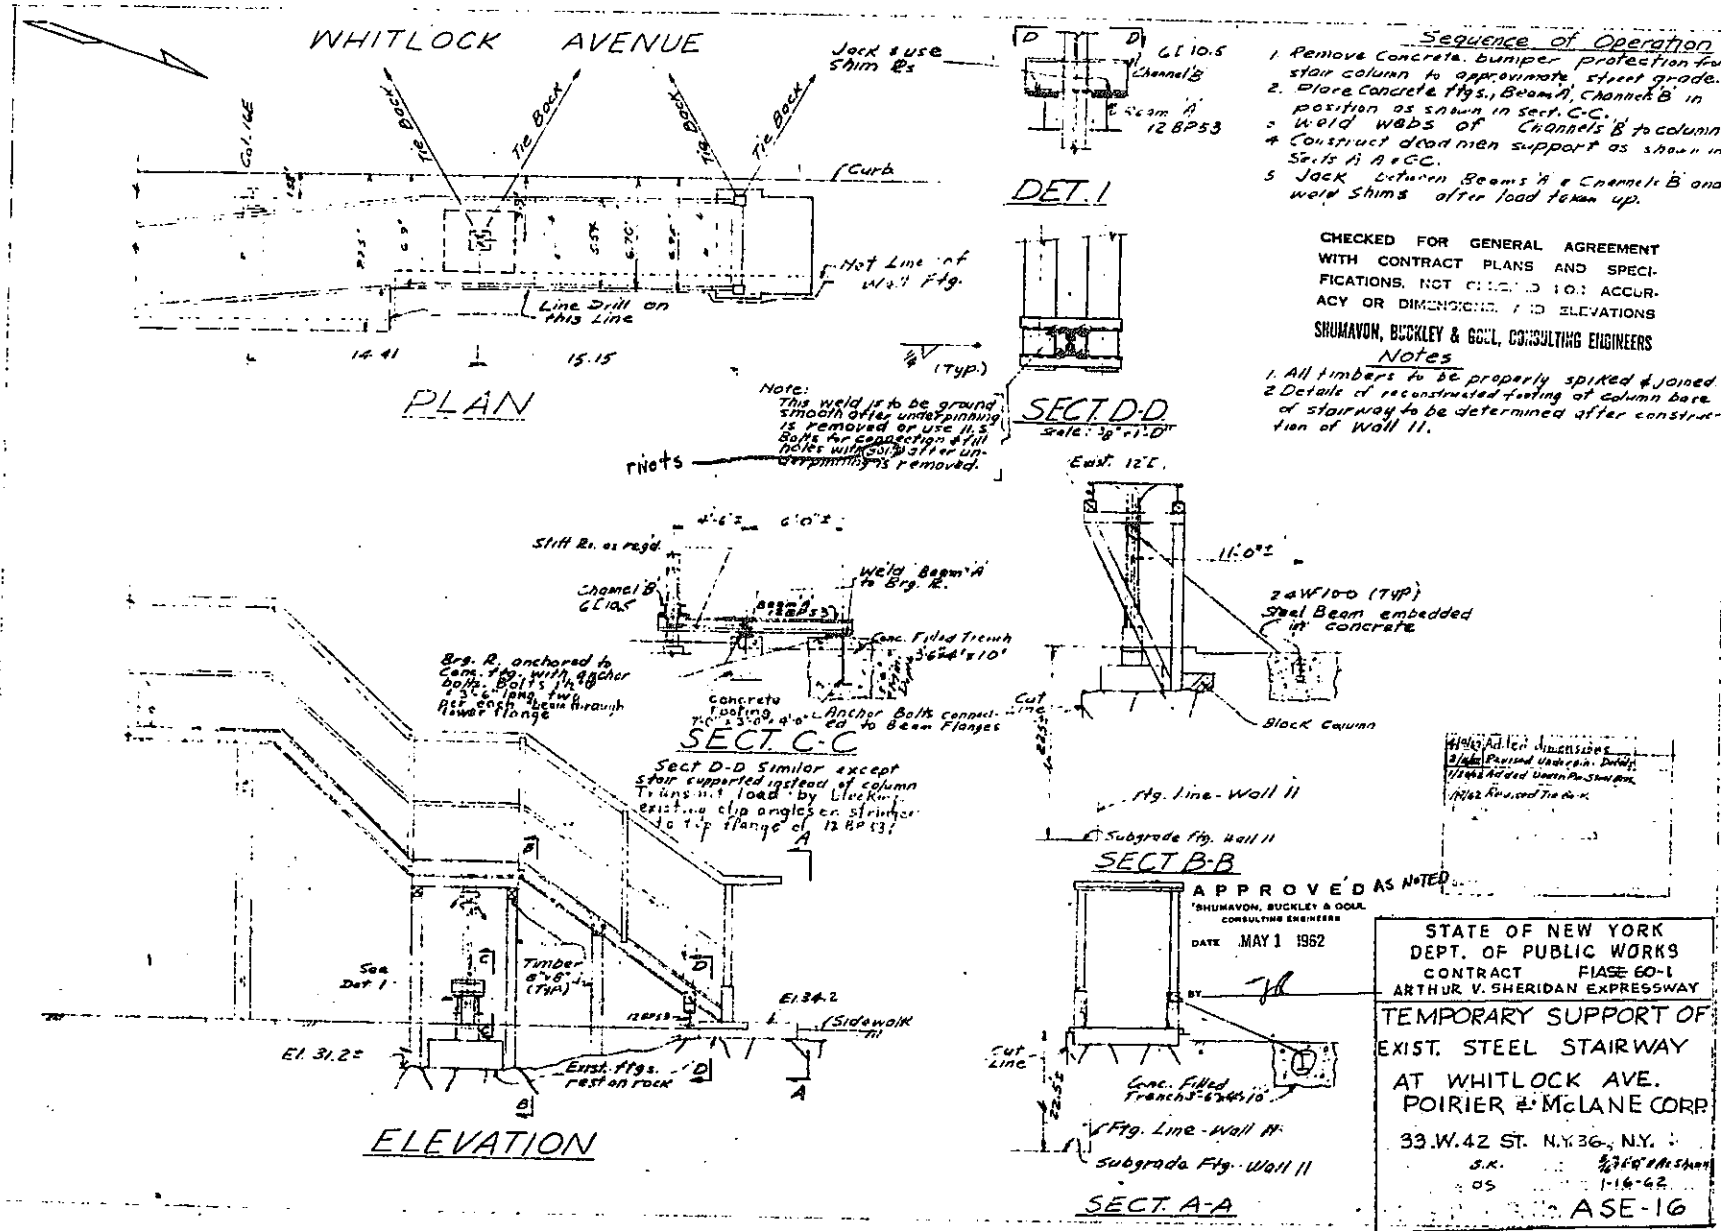 WHITLOCK AVENUE
Tie Back
Tie Back
Tie Back
Tie Back
Col. 16E
Curb
Net Line of
Wall Ftg.
Line Drill on
this Line
14.41
15.15
(Typ.)
PLAN
Jack & use
Shim ₧s
D D
6[10.5
Channel 'B'
Beam 'A'
12 BP53
DET. 1
SECT. D-D
Note:
This weld is to be ground
smooth after underpinning
is removed or use H.S.
Bolts for connection & fill
holes with after un-
derpinning is removed.
rivets
Sequence of Operation
1. Remove Concrete bumper protection
stair column to approximate street grade.
2. Place Concrete ftgs., Beam 'A', Channels 'B' in
position as shown in sect. C-C.
3 Weld webs of Channels B to column
4 Construct deadmen support as shown in
Sects A-A & CC.
5 Jack between Beams 'A' & Channels 'B' and
weld Shims after load taken up.
CHECKED FOR GENERAL AGREEMENT
WITH CONTRACT PLANS AND SPECI-
FICATIONS. NOT FOR ACCUR-
ACY OR DIMENSIONS AND ELEVATIONS
SHUMAVON, BUCKLEY & GOUL, CONSULTING ENGINEERS
Notes
1. All timbers to be properly spiked & joined.
2 Details of reconstructed footing at column base
of stairway to be determined after construc-
tion of Wall 11.
4'-6"± 6'-0"±
Stiff ₧s. as reqd.
Channel 'B'
6[10.5
Beam 'A'
12 BP53
Weld Beam 'A'
to Brg. ₧.
Conc. Filled Trench
3'-6"x4'x10'
Brg. ₧. anchored to
Conc. ftg. with anchor
bolts. Bolts
3'-6" long, two
per each beam through
lower flange
Concrete
footing
7'-0" x 3'-0" x 4'-0"
Anchor Bolts connect-
ed to Beam Flanges
SECT. C-C
Sect D-D Similar except
stair supported instead of column
Transmit load by blocking
existing clip angles on stringer
to top flange of 12 BP53
Exist. 12"[.
11'-0"±
24W100 (TYP)
Steel Beam embedded
in concrete
Cut
Line
22.5±
Block Column
Ftg. Line - Wall 11
Subgrade Ftg. Wall 11
SECT B-B
Added dimensions
Revised Underpin. Details
Revised Tie Back
See
Det 1
Timber
8"x8"
(TYP)
B
C
D
A
12BP53
El. 34.2
Sidewalk
El. 31.2±
Exist. ftgs.
rest on rock
C
D
A
B
ELEVATION
APPROVED AS NOTED
SHUMAVON, BUCKLEY & GOUL
CONSULTING ENGINEERS
DATE MAY 1 1962
BY
Cut
Line
22.5±
Conc. Filled
Trench 3'-6"x4'x10'
Ftg. Line - Wall 11
Subgrade Ftg. Wall 11
SECT. A-A
STATE OF NEW YORK
DEPT. OF PUBLIC WORKS
CONTRACT FIASE 60-1
ARTHUR V. SHERIDAN EXPRESSWAY
TEMPORARY SUPPORT OF
EXIST. STEEL STAIRWAY
AT WHITLOCK AVE.
POIRIER & McLANE CORP
33.W.42 ST. N.Y.36, N.Y.
S.K.
OS 1-16-62
ASE-16